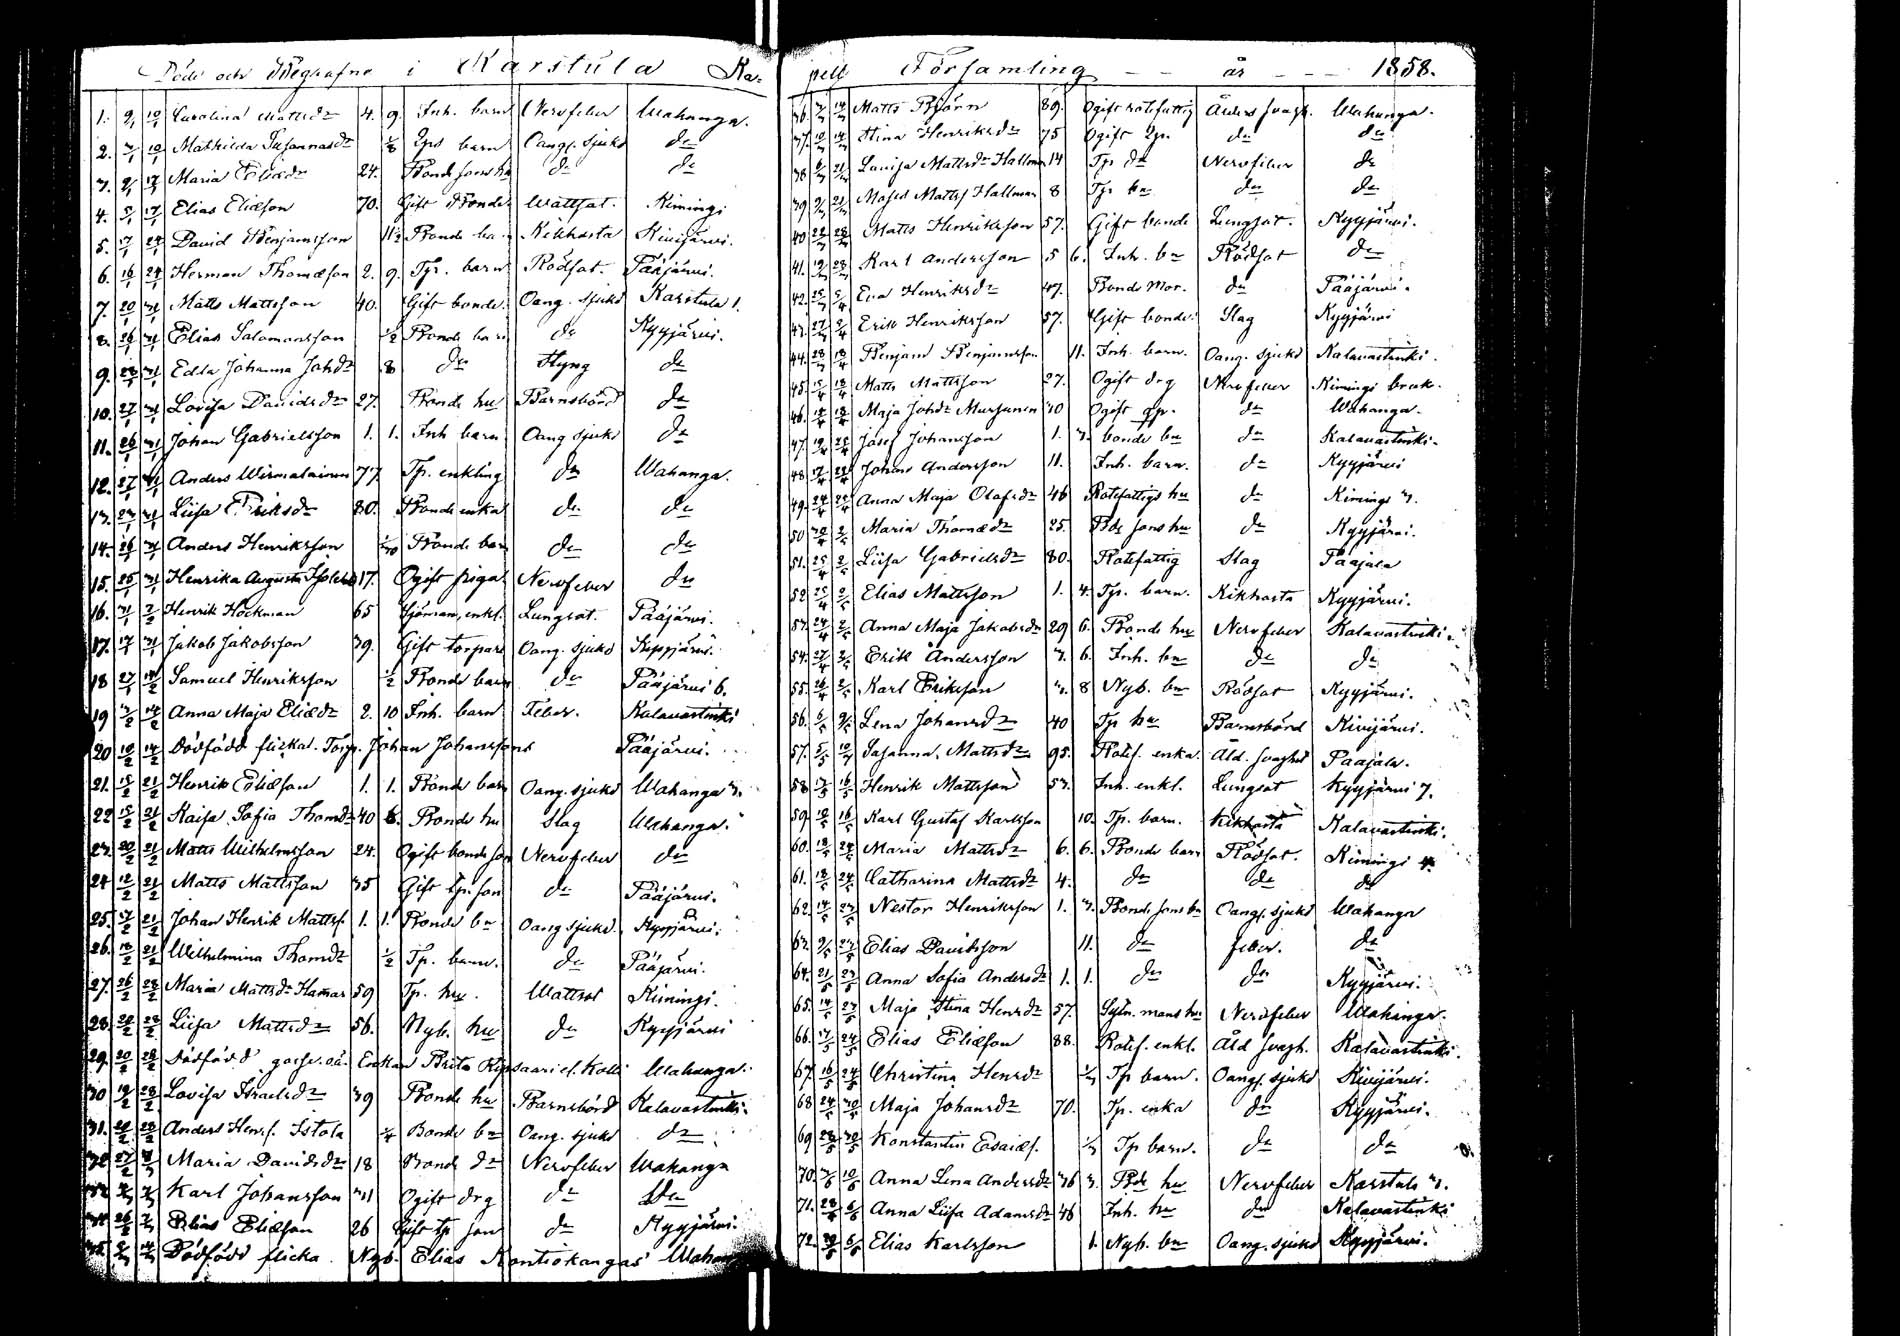 Döde och Begrafne i Karstula Ka-
1. 9/1 10/1 Carolina Mattsdr 4. 9. Inh. barn Nervfeber Wahanga.
2. 7/1 10/1 Mathilda Susannasdr 1/8 Qps barn Oang. sjukd do
3. 9/1 17/1 Maria Eliædr 24. Bonde sons hu do do
4. 5/1 17/1 Elias Eliæson 70. Gift Bonde Wattsot. Kimingi
5. 17/1 24/1 David Benjamsson 11 1/2 Bonde ba Kikhosta Kivijärvi.
6. 16/1 24/1 Herman Thomæson 2. 9. Tpr. barn Rödsot. Pääjärvi.
7. 20/1 31/1 Matts Mattsson 40. Gift bonde. Oang. sjukd Karstula 1.
8. 26/1 31/1 Elias Salomonsson 1/2 Bonde barn do Kyyjärvi.
9. 28/1 31/1 Edla Johanna Johdr 8 do Styng do
10. 27/1 31/1 Lovisa Davidsdr 27. Bonde hu Barnsbörd do
11. 26/1 31/1 Johan Gabrielsson 1. 1. Inh barn Oang sjukd do
12. 27/1 31/1 Anders Wirmalainen 77 Tp. enkling do Wahanga.
13. 27/1 31/1 Liisa Eriksdr 80. Bonde enka do do
14. 26/1 31/1 Anders Henriksson 1/30 Bonde barn do do
15. 25/1 31/1 Henrika Augusta 17. Ogift piga Nervfeber do
16. 31/1 7/2 Henrik Höckman 65 Sjöman, enkl. Lungsot. Pääjärvi.
17. 17/1 31/1 Jakob Jakobsson 39. Gift torpare Oang. sjukd Kyyjärvi.
18 27/1 14/2 Samuel Henriksson 1/2 Bonde barn do Pääjärvi 6.
19 7/2 14/2 Anna Maja Eliædr 2. 10 Inh. barn Feber. Kalavastinki
20 10/2 14/2 Dödfödd flicka. Torp. Johan Johanssons Pääjärvi.
21. 15/2 21/2 Henrik Eliæson 1. 1. Bonde barn Oang. sjukd Wahanga 3.
22 15/2 21/2 Kaisa Sofia Thomdr 40 6. Bonde hu Slag Wahanga.
23. 20/2 21/2 Matts Wilhelmsson 24. Ogift bonde son Nervfeber do
24 12/2 21/2 Matts Mattsson 35 Gift tp. son do Pääjärvi.
25. 17/2 21/2 Johan Henrik Mattsf. 1. 1. Bonde bn Oang sjukd. Kyyjärvi.
26. 18/2 21/2 Wilhelmina Thomdr 1/2 Tp. barn. do Pääjärvi.
27. 26/2 28/2 Maria Mattsdr Hamar 59 Tp. hu. Wattsot Kimingi.
28. 22/2 28/2 Liisa Mattsdr 56. Nyb. hu do Kyyjärvi
29. 20/2 28/2 Dödfödd gosse. oä. Enkan Brita Wahanga.
30 19/2 28/2 Lovisa Israelsdr 39 Bonde hu Barnsbörd Kalavastinki.
31. 20/2 28/2 Anders Henrs. Istola 1/4 Bonde bn Oang. sjukd do
32 27/2 Maria Davidsdr 18 Bonde dr Nervfeber Wahanga
33 Karl Johansson 31 Ogift drg do do
34 26/2 Elias Eliæson 26 Gift tp son do Kyyjärvi.
35. Dödfödd flicka Nyb. Elias Kontiokangas Wahan
pell Församling - - år - - - 1858.
36. 14/3 Matts Björn 89. Ogift rotefattig Ålders svagh. Wahanga.
37. 10/3 14/3 Stina Henriksdr 75 Ogift Qp. do do
38 6/3 21/3 Lovisa Mattsdr Hallman 14 Tp do Nervfeber do
39 9/3 21/3 Moses Mattss Hallman 8 Tp bn do do
40 22/3 28/3 Matts Henriksson 57. Gift bonde Lungsot. Kyyjärvi.
41. 19/3 28/3 Karl Andersson 5 6. Inh. bn Rödsot do
42. 25/3 5/4 Eva Henriksdr 47. Bonde Mor. do Pääjärvi.
43. 27/3 5/4 Erik Henriksson 57. Gift bonde. Slag Kyyjärvi
44. 28/3 18/4 Benjam Benjamsson 11. Inh. barn. Oang. sjukd Kalavastinki.
45. 15/4 18/4 Matts Mattsson 27. Ogift drg Nervfeber Kimingi bruk.
46. 18/4 Maja Johdr Mursunen 30 Ogift qp. do Wahanga.
47. 19/4 25/4 Josef Johansson 1. 3. bonde bn do Kalavastinki.
48 17/4 25/4 Johan Andersson 11. Inh. barn. do Kyyjärvi
49. 24/4 25/4 Anna Maja Olofsdr 46 Rotefattigs hu do Kimingi 3.
50 30/4 2/5 Maria Thomædr 25. Bde sons hu do Kyyjärvi.
51. 25/4 2/5 Liisa Gabrielsdr 80. Rotefattig Slag Pääjälä
52 25/4 2/5 Elias Mattsson 1. 4. Tpr. barn. Kikhosta Kyyjärvi.
53. 24/4 2/5 Anna Maja Jakobsdr 29 6. Bonde hu Nervfeber Kalavastinki.
54. 27/4 2/5 Erik Andersson 3. 6. Inh. bn do do
55. 26/4 2/5 Karl Eriksson 3. 8 Nyb. bn Rödsot Kyyjärvi.
56. 6/5 9/5 Lena Johansdr 40 Tp hu Barnsbörd Kivijärvi.
57. 5/5 10/5 Susanna Mattsdr 95. Rotef. enka. Åld. svaghet Pääjälä.
58 13/5 16/5 Henrik Mattsson 53. Inh. enkl. Lungsot Kyyjärvi 7.
59 10/5 16/5 Karl Gustaf Karlsson 10. Tp. barn. Kikhosta Kalavastinki.
60. 18/5 24/5 Maria Mattsdr 6. 6. Bonde barn Rödsot. Kimingi 4.
61. 18/5 24/5 Catharina Mattsdr 4. do do do
62. 14/5 23/5 Nestor Henriksson 1. 3. Bonde sons bn Oang. sjukd Wahanga
63. 9/5 23/5 Elias Davidsson 11. do feber. do
64. 21/5 23/5 Anna Sofia Andersdr 1. 1. do do Kyyjärvi.
65. 14/5 23/5 Maja Stina Henrdr 57. Sytn. mans hu Nervfeber Wahanga.
66. 17/5 24/5 Elias Eliæson 88. Rotef. enkl. Åld svagh. Kalavastinki.
67. 16/5 24/5 Christina Henrdr 1/3 Tp barn. Oang. sjukd Kivijärvi.
68 24/5 30/5 Maja Johansdr 70. Tp. enka do Kyyjärvi.
69 28/5 30/5 Konstantin Esaias. 1/3 Tp barn. do do
70. 3/6 10/6 Anna Lena Andersdr 36 3. Bde hu Nervfeber Karstula 3.
71. 28/5 6/6 Anna Liisa Adamsdr 46 Inh. hu do Kalavastinki
72. 30/5 6/6 Elias Karlsson 1. Nyb. bn Oang. sjukd Kyyjärvi.